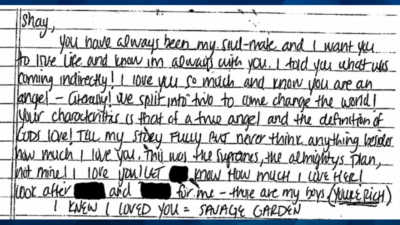 Shay,
You have always been my soul-mate and I want you
to live life and know im always with you. I told you what was
coming indirectly! I love you so much and know you are an
angel - literally! We split into two to come change the world!
Your characteristics is that of a true angel and the definition of
GODS love! Tell my story fully but never think anything besides
how much I love you. This was the supremes, the almightys plan,
not mine! I love you! Let know How much I LOVE HER!
Look after and for me - those are my boys (YOURE RICH)
I KNEW I LOVED YOU = SAVAGE GARDEN